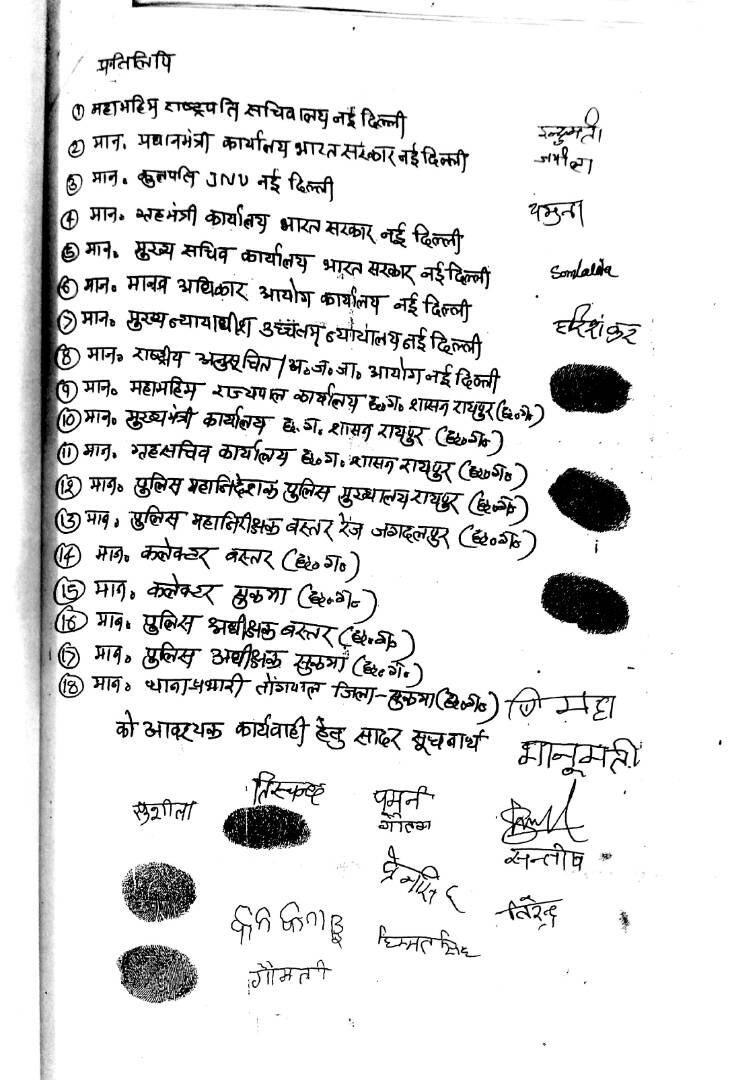 प्रतिलिपि
① महामहिम राष्ट्रपति सचिवालय नई दिल्ली
② मान. प्रधानमंत्री कार्यालय भारत सरकार नई दिल्ली
③ मान. कुलपति JNU नई दिल्ली
④ मान. गृहमंत्री कार्यालय भारत सरकार नई दिल्ली
⑤ मान. मुख्य सचिव कार्यालय भारत सरकार नई दिल्ली
⑥ मान. मानव अधिकार आयोग कार्यालय नई दिल्ली
⑦ मान. मुख्य न्यायाधीश उच्चतम न्यायालय नई दिल्ली
⑧ मान. राष्ट्रीय अनुसूचित/अ.ज.जा. आयोग नई दिल्ली
⑨ मान. महामहिम राज्यपाल कार्यालय छ.ग. शासन रायपुर (छ.ग.)
⑩ मान. मुख्यमंत्री कार्यालय छ.ग. शासन रायपुर (छ.ग.)
⑪ मान. गृहसचिव कार्यालय छ.ग. शासन रायपुर (छ.ग.)
⑫ मान. पुलिस महानिदेशक पुलिस मुख्यालय रायपुर (छ.ग.)
⑬ मान. पुलिस महानिरीक्षक बस्तर रेंज जगदलपुर (छ.ग.)
⑭ मान. कलेक्टर बस्तर (छ.ग.)
⑮ मान. कलेक्टर सुकमा (छ.ग.)
⑯ मान. पुलिस अधीक्षक बस्तर (छ.ग.)
⑰ मान. पुलिस अधीक्षक सुकमा (छ.ग.)
⑱ मान. थाना प्रभारी तोंगपाल जिला-सुकमा (छ.ग.)
को आवश्यक कार्यवाही हेतु सादर सूचनार्थ
इन्दुमती
यमुना
हरिशंकर
भानूमती
सुशीला
गौतम
सन्तोष
हिम्मत सिंह
गौमती